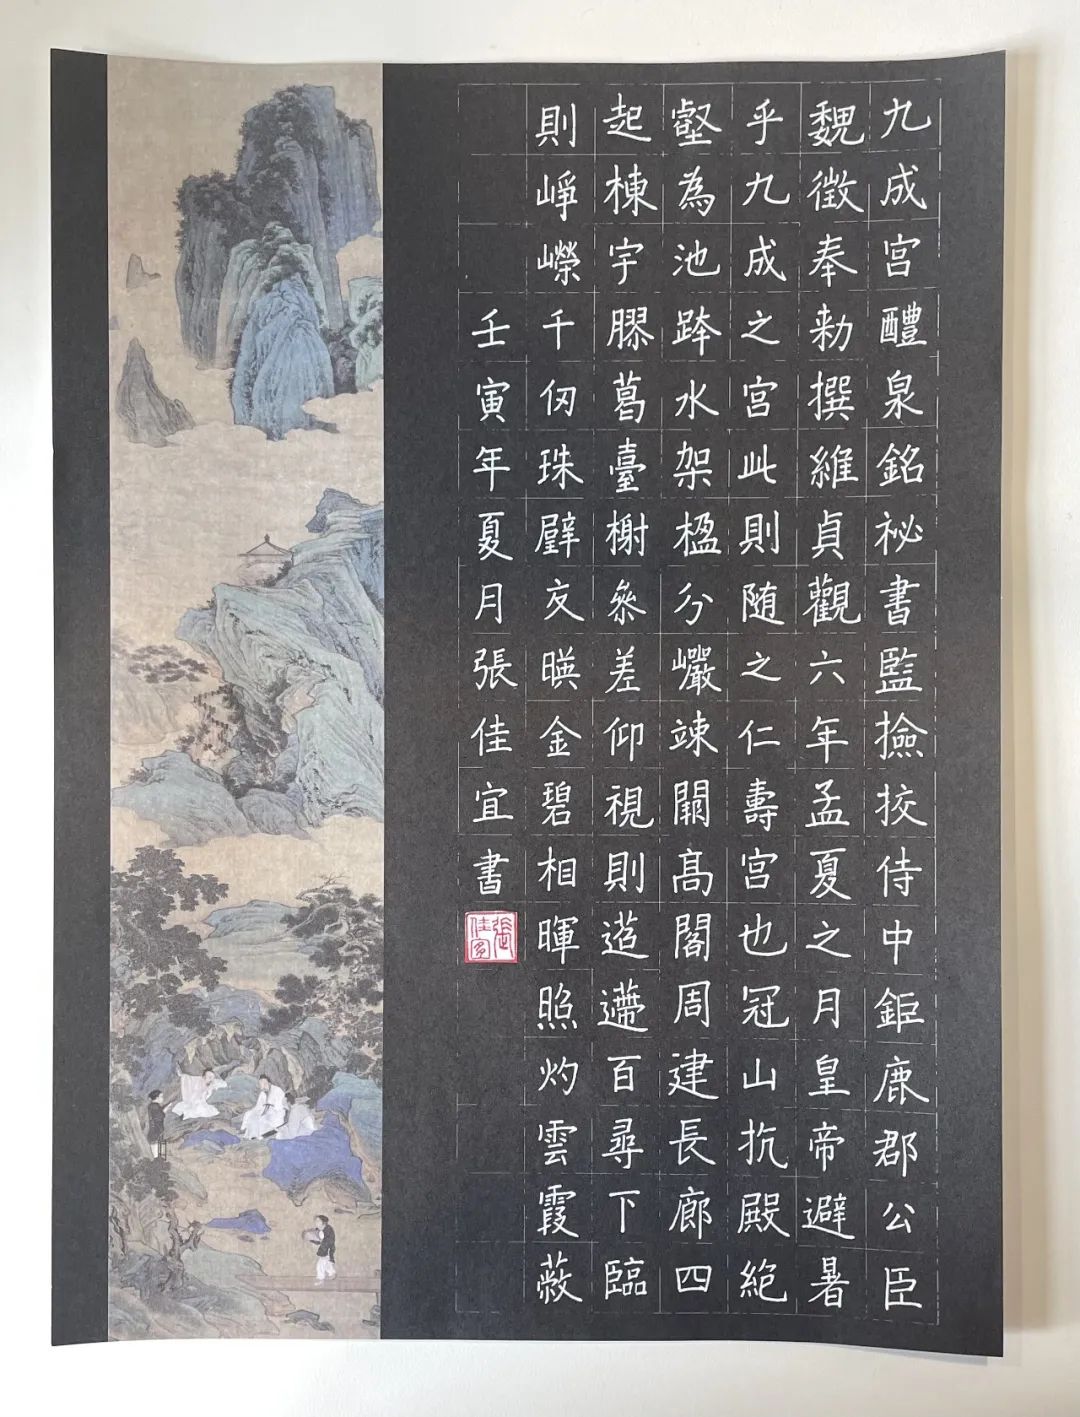 九成宮醴泉銘祕書監撿挍侍中鉅鹿郡公臣
魏徵奉勅撰維貞觀六年孟夏之月皇帝避暑
乎九成之宮此則随之仁壽宮也冠山抗殿絶
壑為池跨水架楹分巗竦闕高閣周建長廊四
起棟宇膠葛臺榭叅差仰視則迢遰百尋下臨
則崢嶸千仞珠璧交暎金碧相暉照灼雲霞蔽
壬寅年夏月張佳宜書